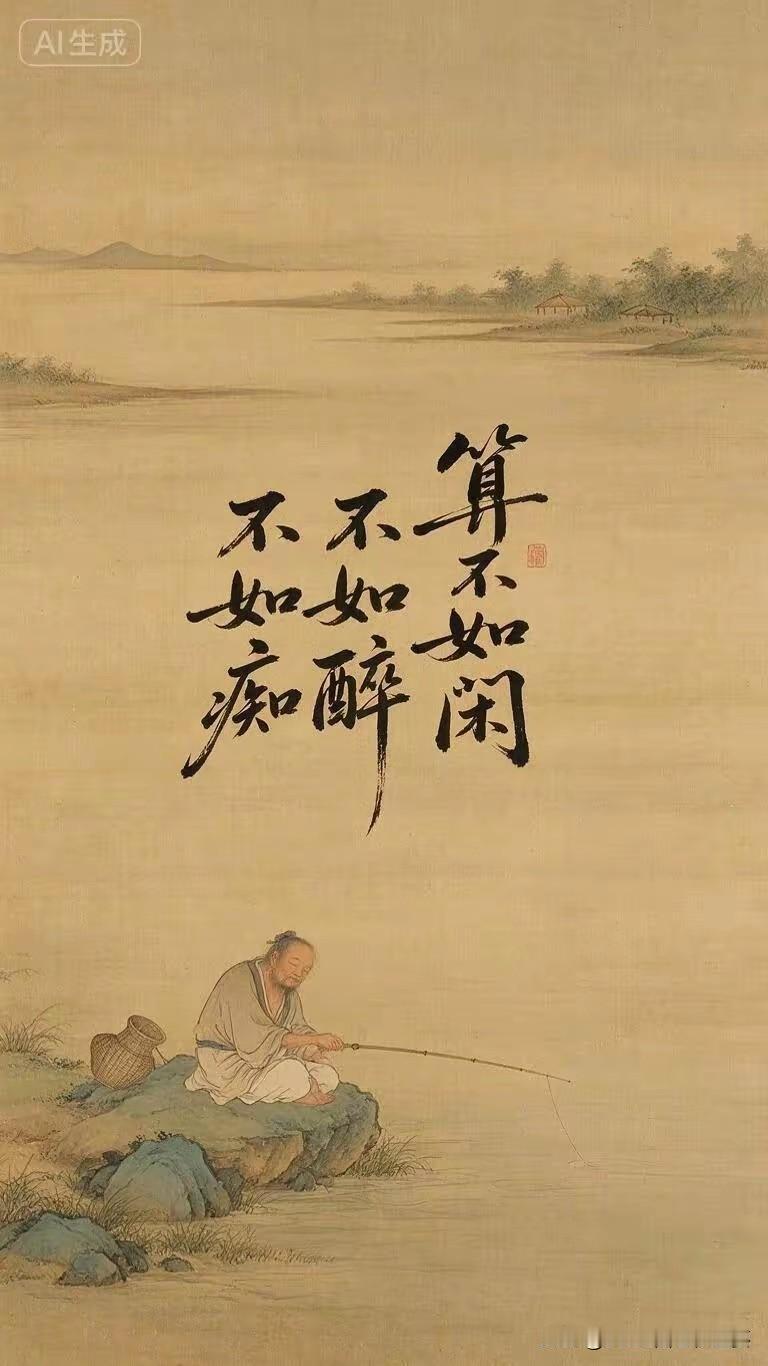 AI生成
算不如閑
不如醉
不如痴